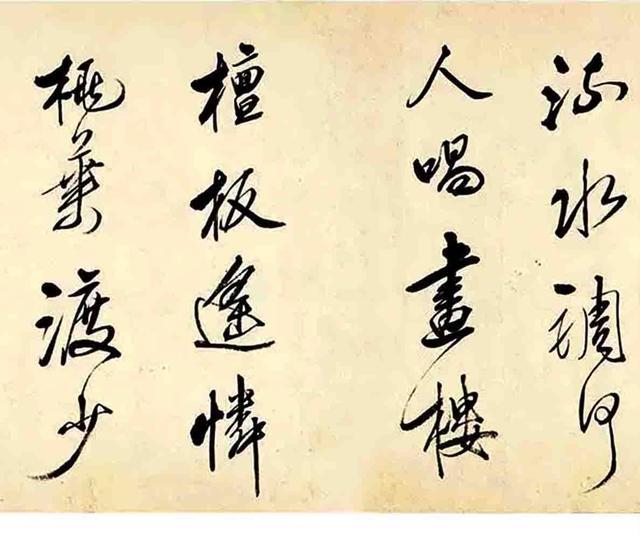 流水調何
人唱畫樓
檀板遙憐
桃葉渡少